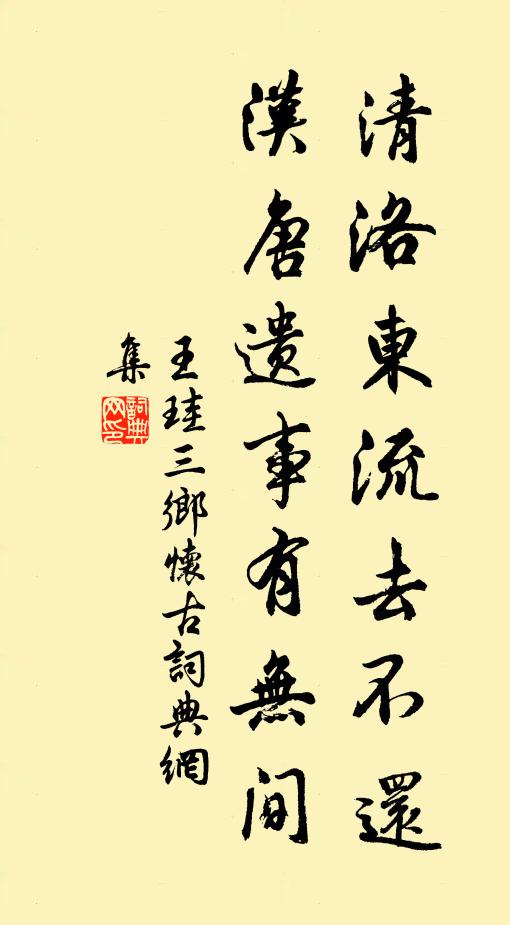 清洛東流去不還
漢唐遺事有無間
王珪三鄉懷古詞典網
集
詞典
網印